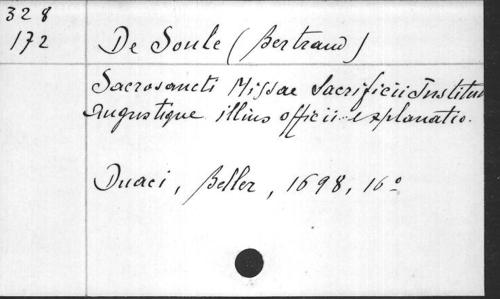 328
172
De Soule (Bertrand)
Sacrosancti Missae Sacrificii Institu
Augustique illius officii explanatio.
Duaci, Beller, 1698, 16o